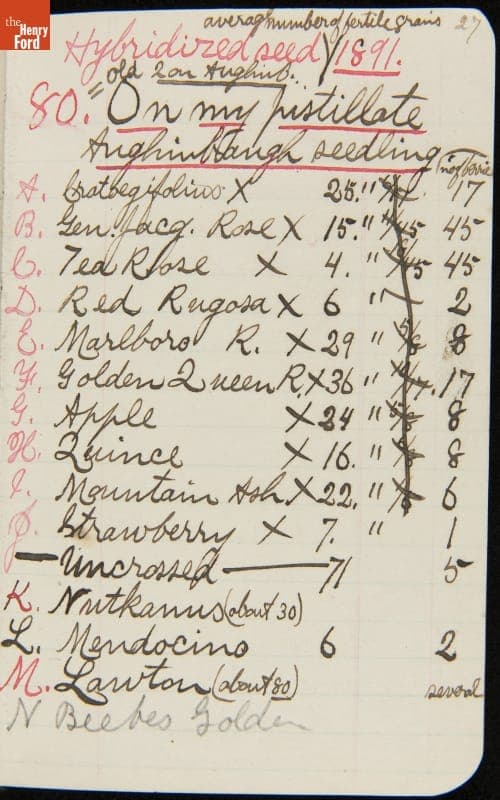 the Henry Ford
average number of fertile grains 27
Hybridized seed / 1891.
old 2 on Aughinb.
80. " On my pistillate
Aughinbaugh seedling no of berries
A. Crataegifolius X 25. " 17
B. Gen. Jacq. Rose X 15. " 45 45
C. Tea Rose X 4. " 45 45
D. Red Rugosa X 6 " 2
E. Marlboro R. X 29 " 8
F. Golden Queen R. X 36 " 17
G. Apple X 24 " 8
H. Quince X 16. " 8
I. Mountain Ash X 22. " 6
J. Strawberry X 7. " 1
— Uncrossed — 71 5
K. Nutkanus (about 30)
L. Mendocino 6 2
M. Lawton (about 80) several
N Beebes Golden